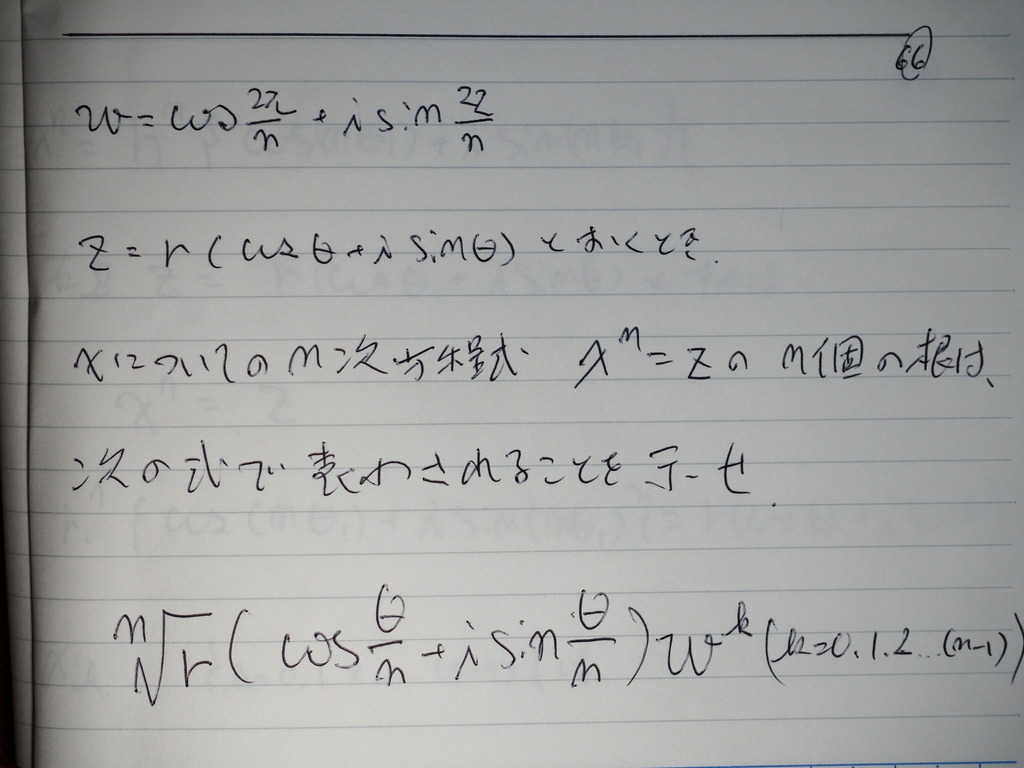 66
w = cos 2π/n + i sin 2π/n
z = r ( cos θ + i sin θ ) とおくとき.
xについてのn次方程式 x^n = z の n個の根は、
次の式で表わされることを示せ.
ⁿ√r ( cos θ/n + i sin θ/n ) w^k (k=0.1.2...(n-1))